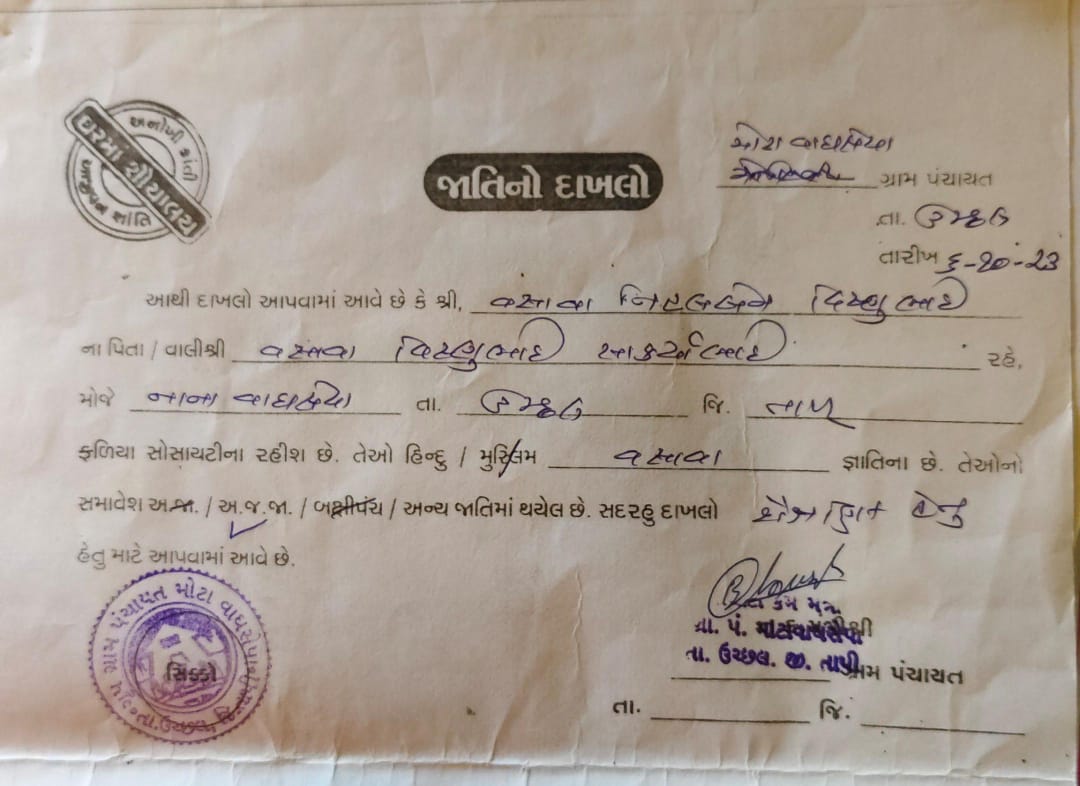 અનોખી ક્રાંતી
ઘરમાં શૌચાલય
જીવન શાંતિ
જાતિનો દાખલો
મોટા વાઘસેપા
ગ્રામ પંચાયત
તા. ઉચ્છલ
તારીખ ૬-૧૦-૨૩
આથી દાખલો આપવામાં આવે છે કે શ્રી, વસાવા વિષ્ણુભાઈ
ના પિતા / વાલીશ્રી વસાવા વિષ્ણુભાઈ રહે,
મોજે નાના વાઘસેપા તા. ઉચ્છલ જિ. તાપી
ફળિયા સોસાયટીના રહીશ છે. તેઓ હિન્દુ / મુસ્લિમ વસાવા જ્ઞાતિના છે. તેઓનો
સમાવેશ અ.જા. / અ.જ.જા. / બક્ષીપંચ / અન્ય જાતિમાં થયેલ છે. સદરહુ દાખલો શૈક્ષણિક હેતુ
હેતુ માટે આપવામાં આવે છે.
ગ્રામ પંચાયત મોટા વાઘસેપા
સિક્કો
તા.ઉચ્છલ, જિ.
ગ્રા. પં. મોટાવાઘસેપા
તા. ઉચ્છલ. જી. તાપી
ગ્રામ પંચાયત
તા. જિ.